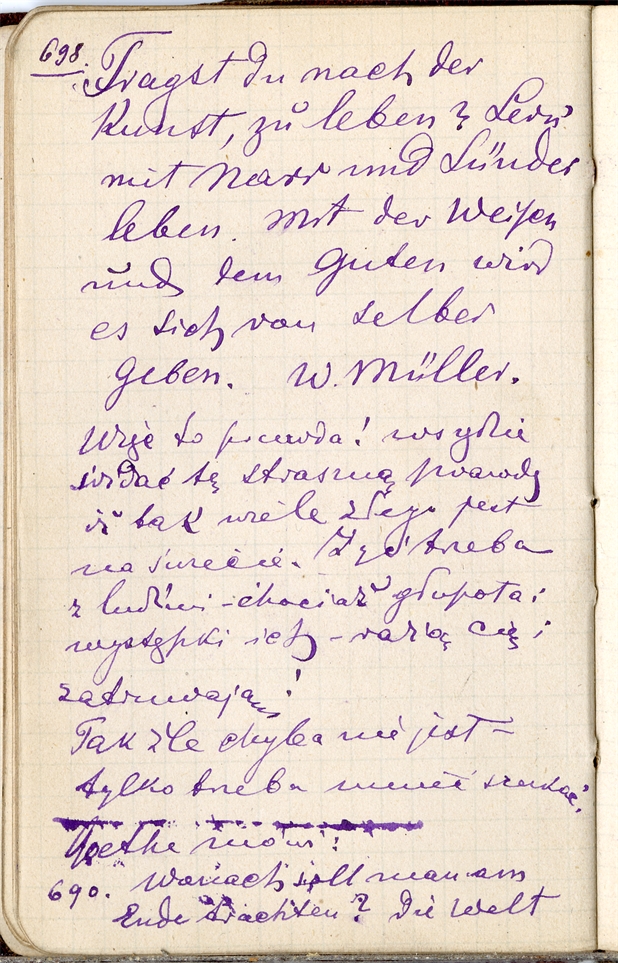 698. Fragst du nach der
Kunst, zu leben? Lern
mit Narr und Sünder
leben. Mit der Weisen
und dem Guten wird
es sich von selber
geben. W. Müller.
to prawda!
widać tę straszną prawdę
iż tak wiele złego jest
na świecie. Żyć trzeba
z ludźmi - chociaż głupota i
występki ich - rażą cię i
zatruwają!
Tak źle chyba nie jest -
tylko trzeba umieć szukać.
Goethe mówi:
690. Wonach soll man am
Ende trachten? Die Welt